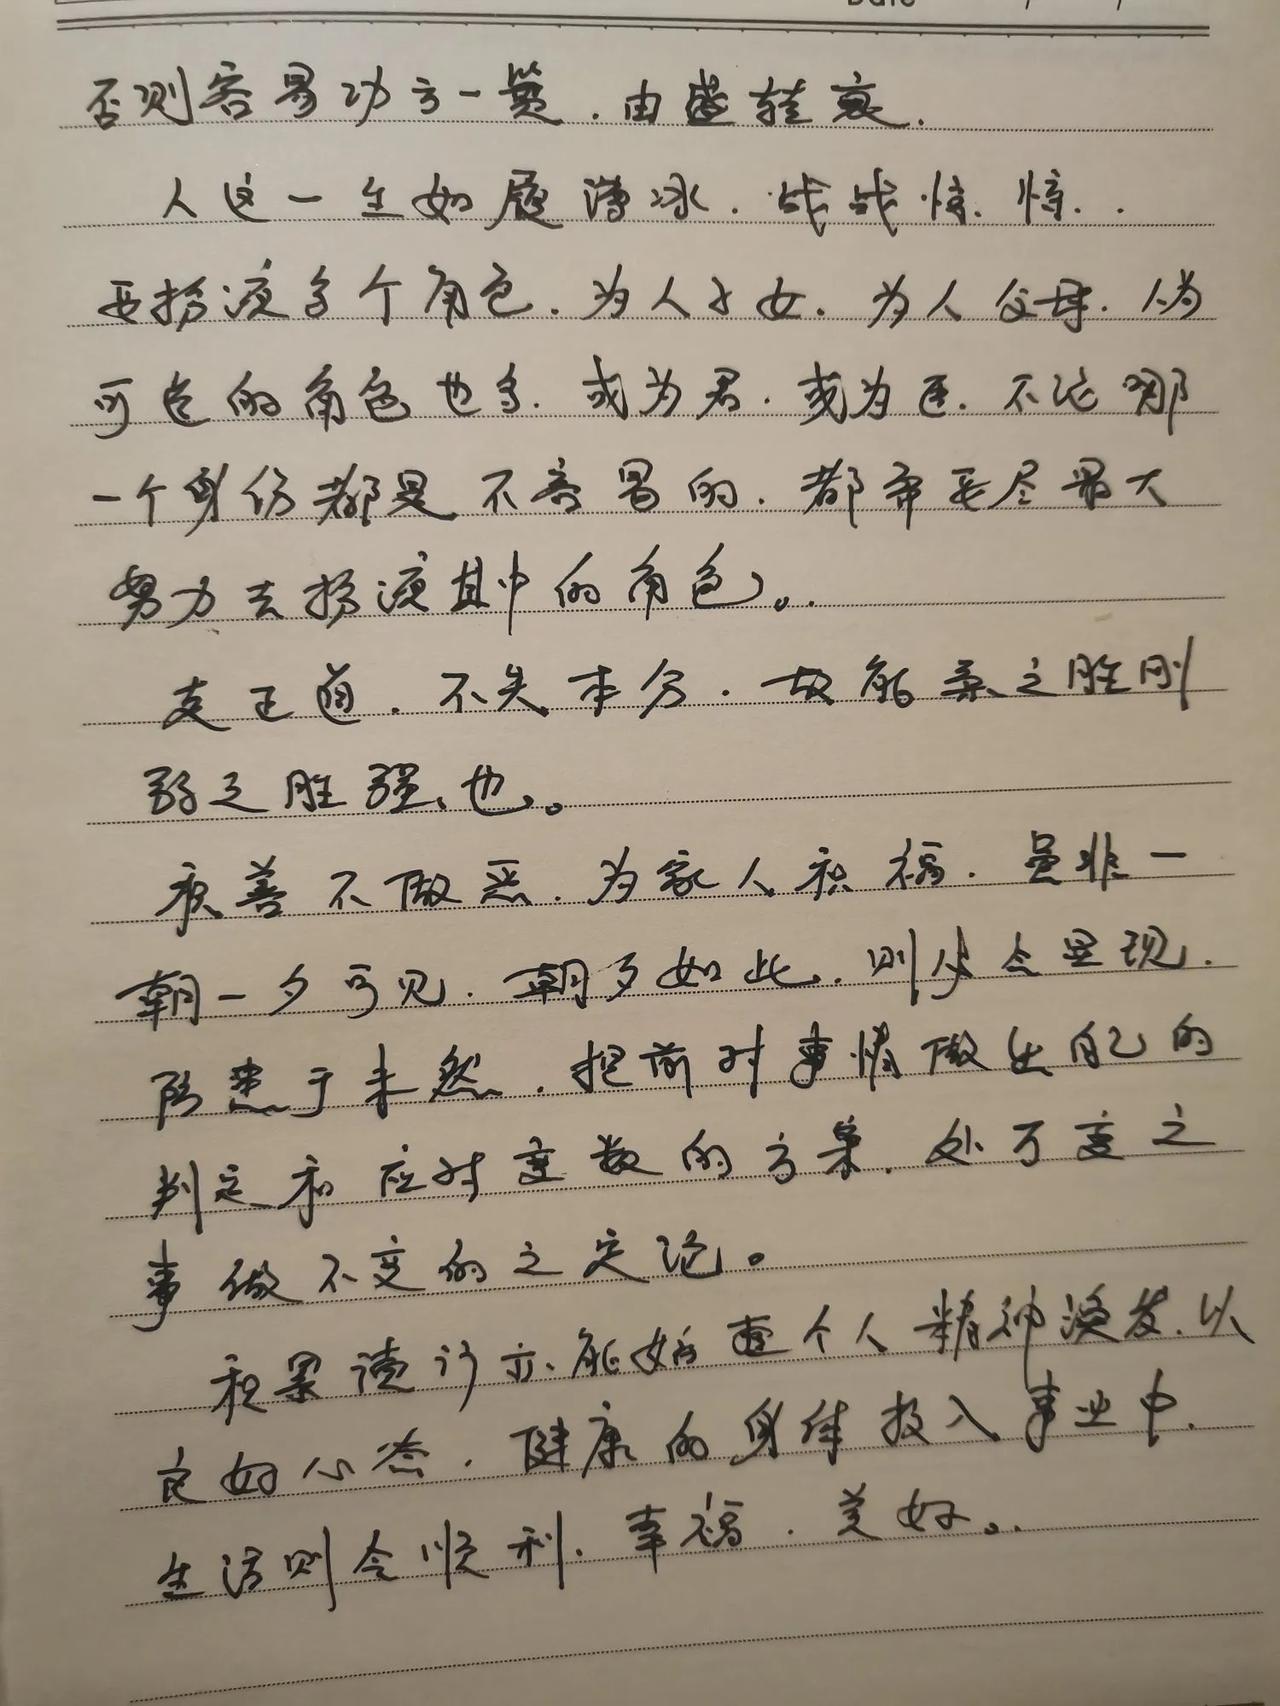 Date / /
否则容易功亏一篑.由盛转衰.
人这一生如履薄冰.战战惊.惊..
要扮演多个角色.为人子女.为人父母.人为
可选的角色也多.或为君.或为臣.不论哪
一个身份都是不容易的.都需要尽最大
努力去扮演其中的角色。.
走正道.不失本分.故能柔之胜刚
弱之胜强、也。
积善不做恶.为家人积福.虽非一
朝一夕可见.朝夕如此.则会显现.
防患于未然.提前对事情做出自己的
判定和应对变数的方案.处万变之
事做不变的之定论。
积累读行亦能如整个人精神焕发.以
良好心态.健康的身体投入事业中.
生活则会顺利.幸福.美好。.